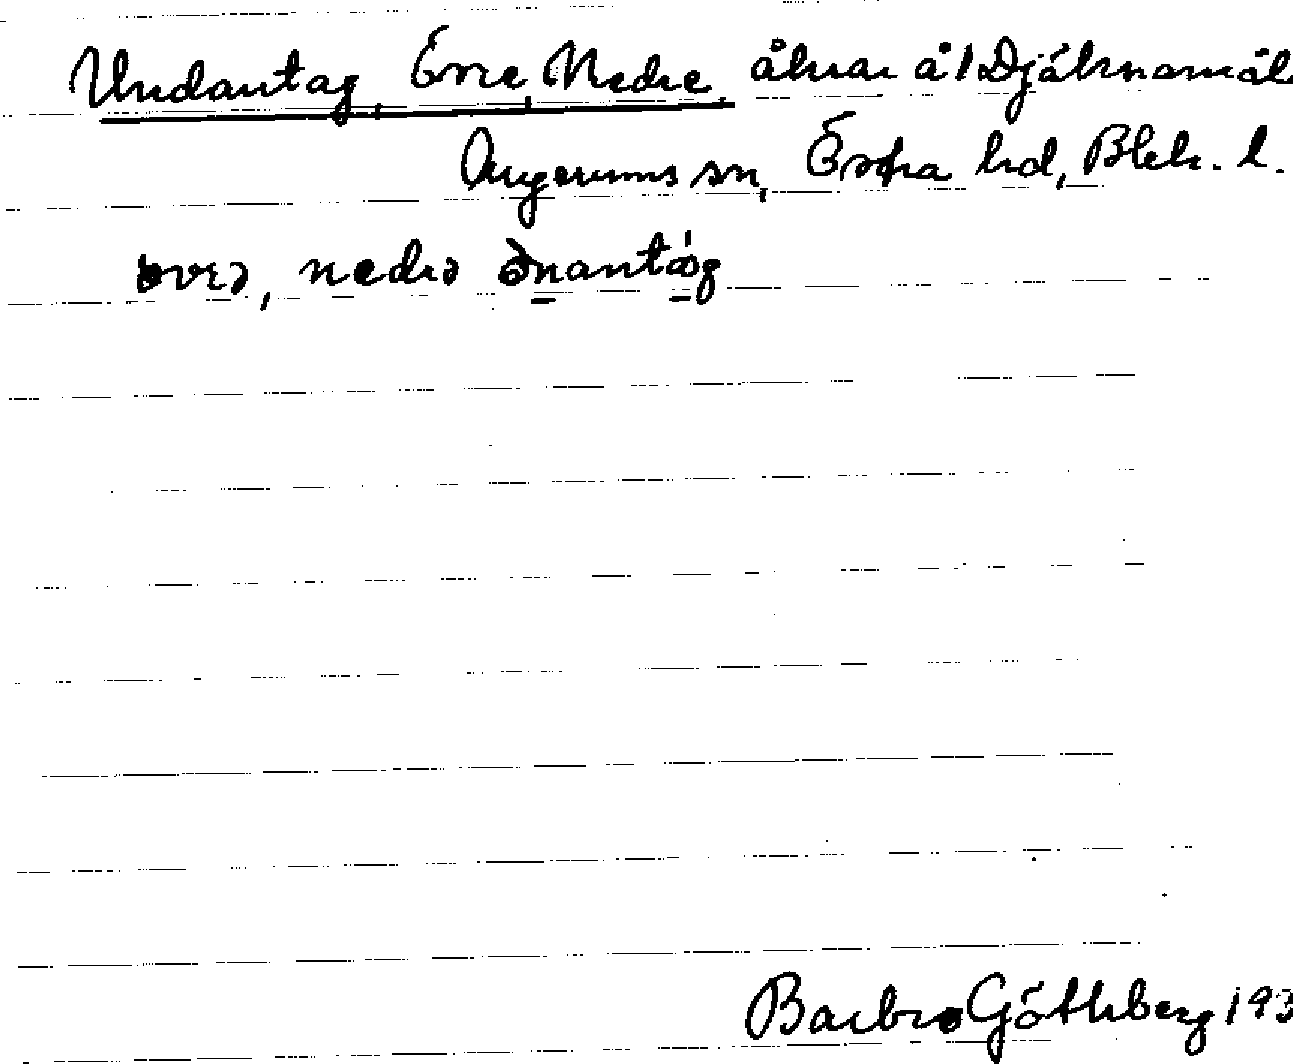 Undantag, Övre, Nedre, åkrar å 1 Djäknamål
Augerums sn, Östra hd, Blek. l.
øvrə, nedrə ònantág
Barbro Göthberg 193